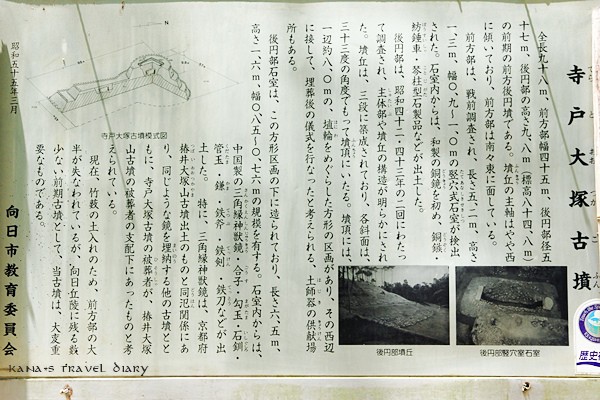 寺戸大塚古墳
全長九十八m、前方部幅四十五m、後円部径五
十七m、後円部の高さ九、八m(標高八十四、八m)
の前期の前方後円墳である。墳丘の主軸はやや西
に傾いており、前方部は南々東に面している。
前方部は、戦前調査され、長さ五、二m、高さ
一、二m、幅〇、九〜一、〇mの竪穴式石室が検出
された。石室内からは、和製の銅鏡を初め、銅鏃
紡錘車・琴柱型石製品などが出土した。
後円部は、昭和四十二・四十三年の二回にわたっ
て調査され、主体部や墳丘の構造が明らかにされ
た。墳丘は、三段に築成されており、各斜面は、
三十三度の角度でもって墳頂にいたる。墳頂には、
一辺約八、〇mの、埴輪をめぐらした方形の区画があり、その西辺
に接して、埋葬後の儀式を行なったと考えられる、土師器の供献場
所もある。
後円部石室は、この方形区画の下に造られており、長さ六、五m、
高さ二、六m、幅〇、八五〜〇、七六mの規模を有する。石室内からは、
中国製の三角縁神獣鏡・合子・勾玉・石釧・
管玉・鎌・鉄斧・鉄剣・鉄刀などが出
土した。特に、三角縁神獣鏡は、京都府
椿井大塚山古墳出土のものと同笵関係にあ
り、同じような鏡を埋納する他の古墳とと
もに、寺戸大塚古墳の被葬者が、椿井大塚
山古墳の被葬者の支配下にあったものと考
えられている。
現在、竹薮の土入れのため、前方部の大
半が失なわれているが、向日丘陵に残る数
少ない前期古墳として、当古墳は、大変重
要なものである。
昭和五十五年三月
向日市教育委員会
寺戸大塚古墳模式図
後円部墳丘
後円部竪穴室石室
歴史
KANA'S TRAVEL DIARY